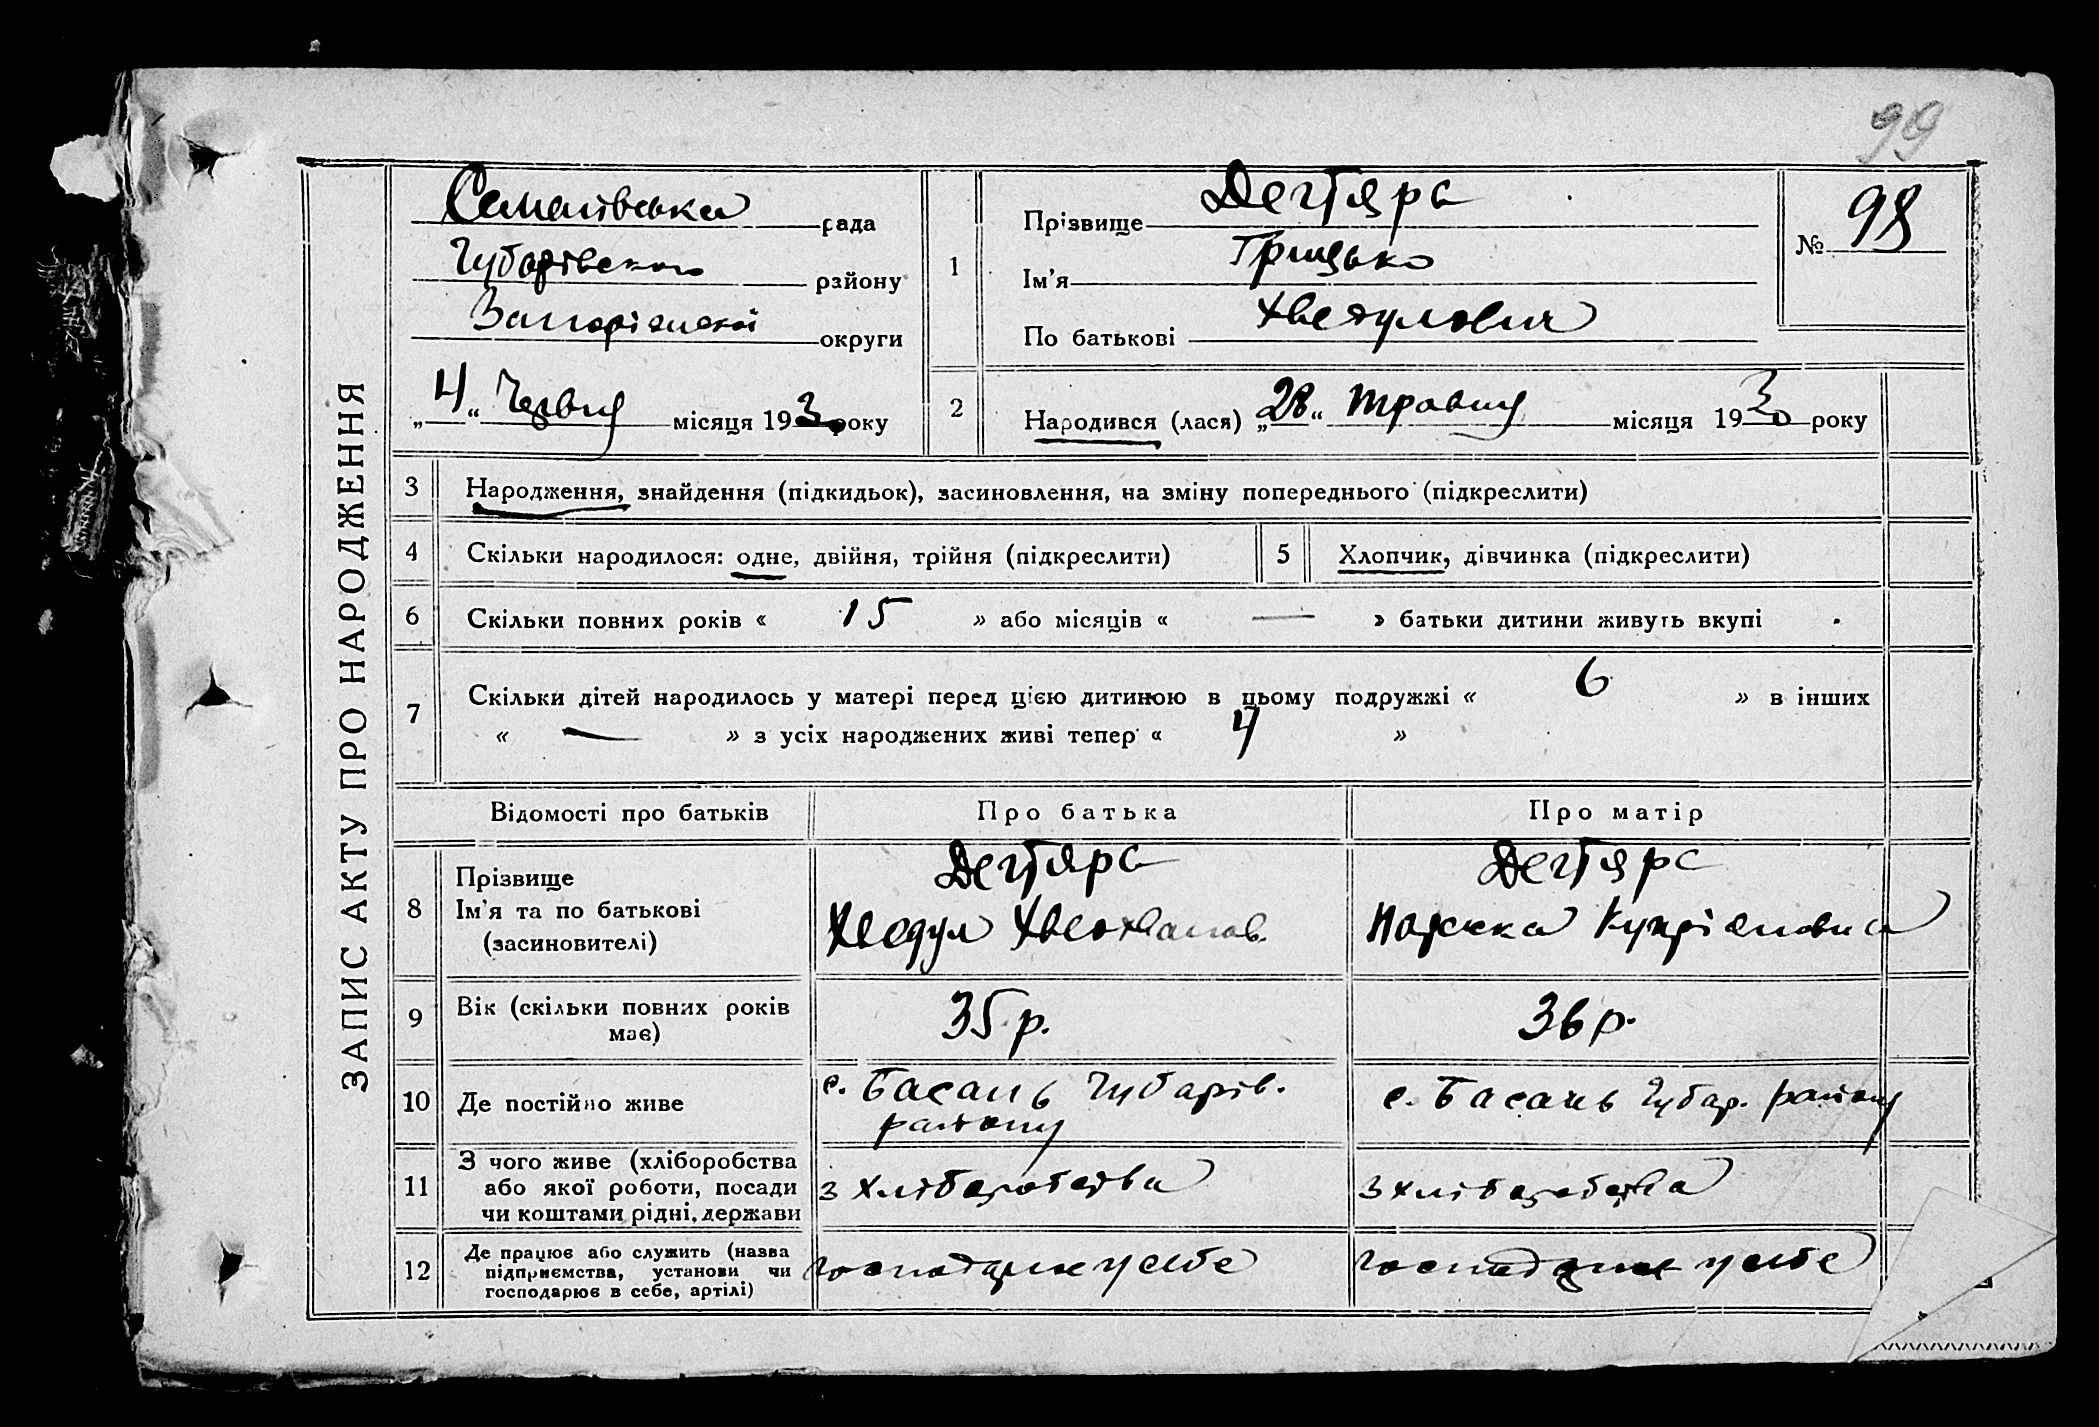 99
ЗАПИС АКТУ ПРО НАРОДЖЕННЯ
рада
Чубарівського району
Запорізької округи
„4“ Червня місяця 1930 року
1
Прізвище Дегтярь
Ім'я Грицько
По батькові Хведулович
№ 98
2
Народився (лася) „28“ травня місяця 1930 року
3 Народження, знайдення (підкидьок), засиновлення, на зміну попереднього (підкреслити)
4 Скільки народилося: одне, двійня, трійня (підкреслити) 5 Хлопчик, дівчинка (підкреслити)
6 Скільки повних років « 15 » або місяців « — » батьки дитини живуть вкупі
7 Скільки дітей народилось у матері перед цією дитиною в цьому подружжі « 6 » в інших
« — » з усіх народжених живі тепер « 4 »
Відомості про батьків Про батька Про матір
8 Прізвище
Ім'я та по батькові
(засиновителі)
Дегтярь
Хведул
Дегтярь
Купріяновна
9 Вік (скільки повних років
має)
35 р.
36 р.
10 Де постійно живе
с. Басань Чубарів.
району
с. Басань Чубар. району
11 З чого живе (хліборобства
або якої роботи, посади
чи коштами рідні, держави
з хліборобства
з хліборобства
12 Де працює або служить (назва
підприємства, установи чи
господарює в себе, артілі)
господарює у себе
господарює у себе